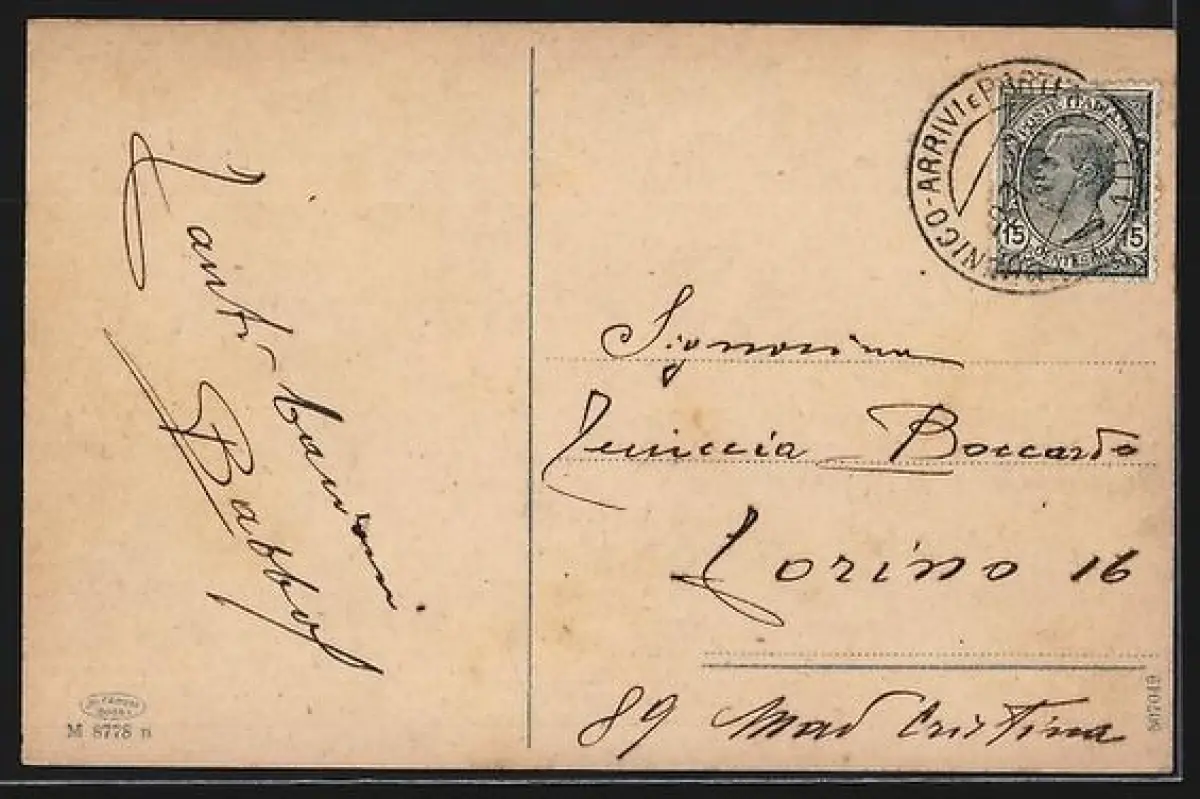 Tanti bacioni
Babbo
NICO-ARRIVI E PARTE
POSTE ITALIANE
15 15
CENTESIMI
Signorina
Boccardo
Torino 16
89 Mad Cristina
M 8778 n